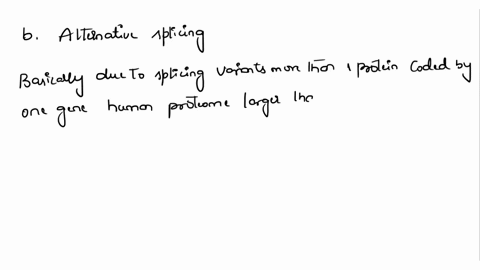 b. Alternative splicing
Basically due to splicing variants more than 1 protein coded by
one gene human proteome larger tha